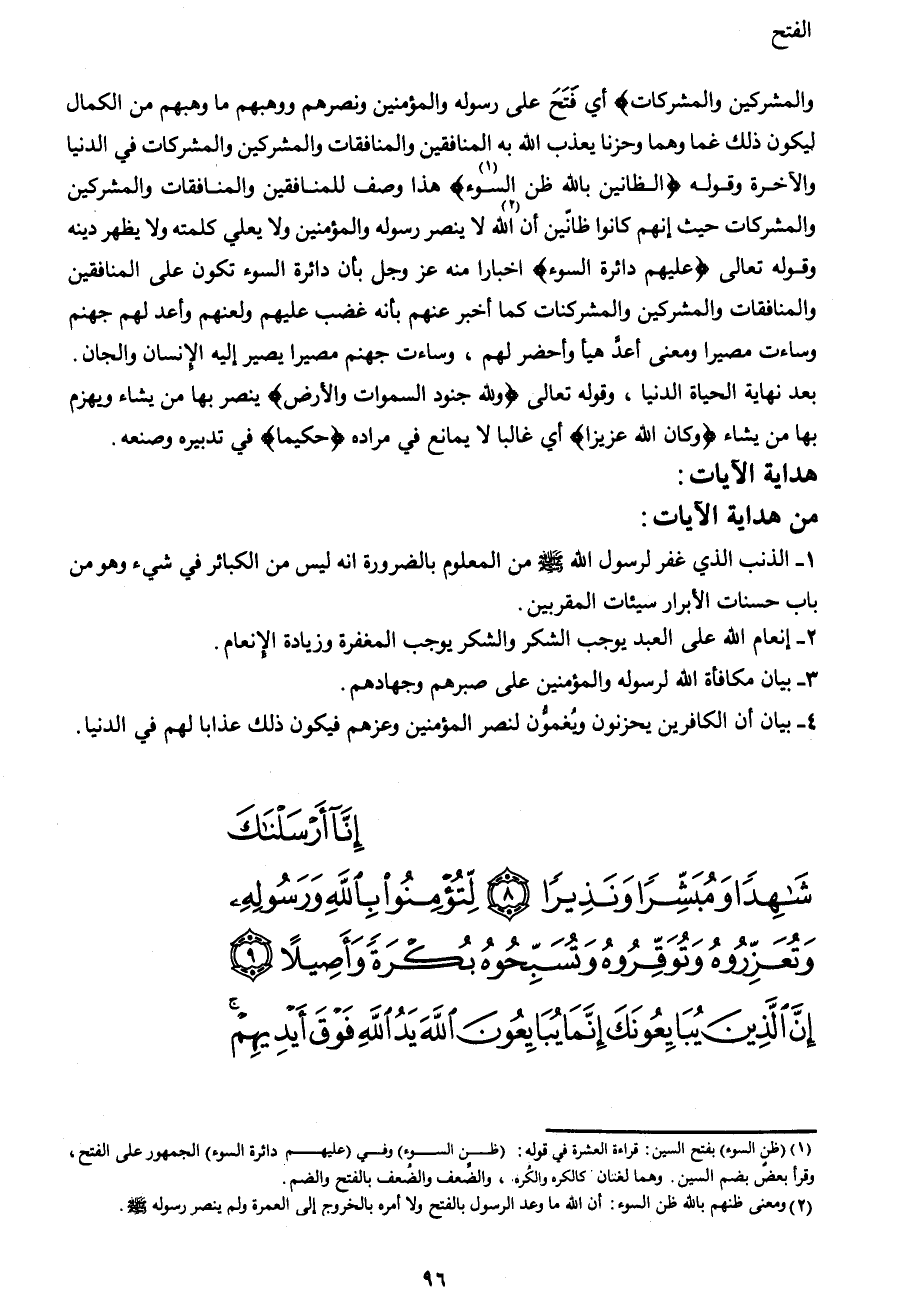 الفتح
والمشركين والمشركات﴾ أي فَتَحَ على رسوله والمؤمنين ونصرهم ووهبهم ما وهبهم من الكمال
ليكون ذلك غما وهما وحزنا يعذب الله به المنافقين والمنافقات والمشركين والمشركات في الدنيا
والآخرة وقوله ﴿الظانين بالله ظن السوء﴾(١) هذا وصف للمنافقين والمنافقات والمشركين
والمشركات حيث إنهم كانوا ظانّين أن(٢) الله لا ينصر رسوله والمؤمنين ولا يعلي كلمته ولا يظهر دينه
وقوله تعالى ﴿عليهم دائرة السوء﴾ اخبارا منه عز وجل بأن دائرة السوء تكون على المنافقين
والمنافقات والمشركين والمشركنات كما أخبر عنهم بأنه غضب عليهم ولعنهم وأعد لهم جهنم
وساءت مصيرا ومعنى أعدَّ هيأ وأحضر لهم ، وساءت جهنم مصيرا يصير إليه الإنسان والجان.
بعد نهاية الحياة الدنيا ، وقوله تعالى ﴿ولله جنود السموات والأرض﴾ ينصر بها من يشاء ويهزم
بها من يشاء ﴿وكان الله عزيزا﴾ أي غالبا لا يمانع في مراده ﴿حكيما﴾ في تدبيره وصنعه.
هداية الآيات:
من هداية الآيات:
١- الذنب الذي غفر لرسول الله ﷺ من المعلوم بالضرورة انه ليس من الكبائر في شيء وهو من
باب حسنات الأبرار سيئات المقربين.
٢- إنعام الله على العبد يوجب الشكر والشكر يوجب المغفرة وزيادة الإنعام.
٣- بيان مكافأة الله لرسوله والمؤمنين على صبرهم وجهادهم.
٤- بيان أن الكافرين يحزنون ويُغموُّن لنصر المؤمنين وعزهم فيكون ذلك عذابا لهم في الدنيا.
إِنَّآ أَرۡسَلۡنَٰكَ
شَٰهِدٗا وَمُبَشِّرٗا وَنَذِيرٗا ٨ لِّتُؤۡمِنُواْ بِٱللَّهِ وَرَسُولِهِۦ
وَتُعَزِّرُوهُ وَتُوَقِّرُوهُ وَتُسَبِّحُوهُ بُكۡرَةٗ وَأَصِيلًا ٩
إِنَّ ٱلَّذِينَ يُبَايِعُونَكَ إِنَّمَا يُبَايِعُونَ ٱللَّهَ يَدُ ٱللَّهِ فَوۡقَ أَيۡدِيهِمۡۚ
(١) (ظن السوء) بفتح السين: قراءة العشرة في قوله: (ظن السوء) وفي (عليهم دائرة السوء) الجمهور على الفتح،
وقرأ بعضٌ بضم السين. وهما لغتان كالكره والكُره، والضُعف والضَعف بالفتح والضم.
(٢) ومعنى ظنهم بالله ظن السوء: أن الله ما وعد الرسول بالفتح ولا أمره بالخروج إلى العمرة ولم ينصر رسوله ﷺ.
٩٦